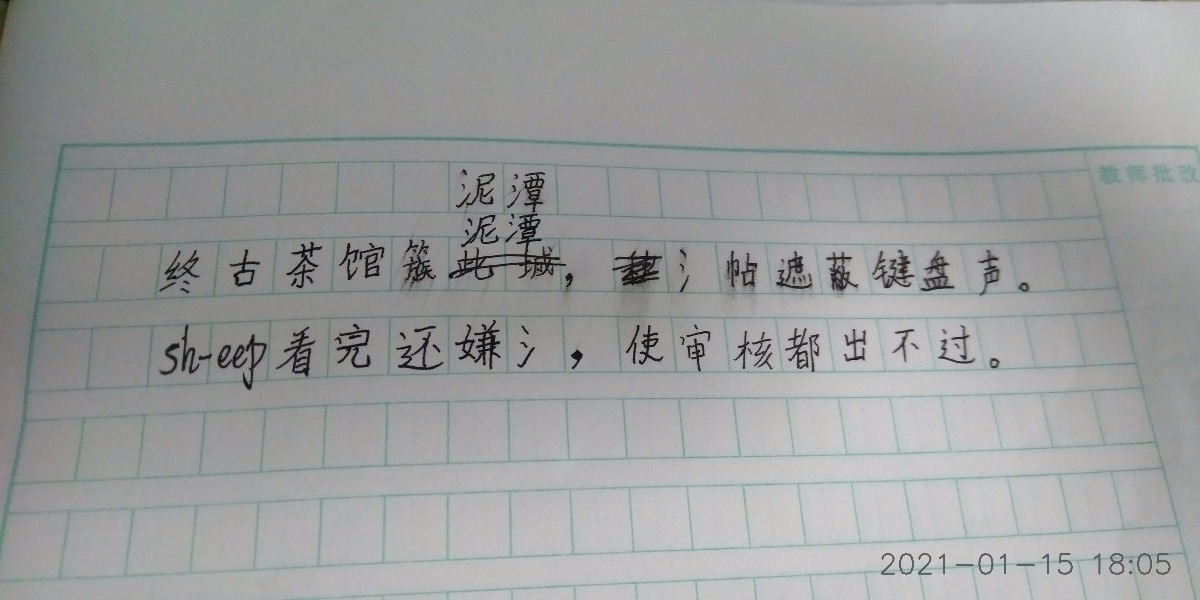 教师批改
泥潭
泥潭
终古茶馆簇此城，氵帖遮蔽键盘声。
sh-eep看完还嫌氵，使审核都出不过。
2021-01-15 18:05